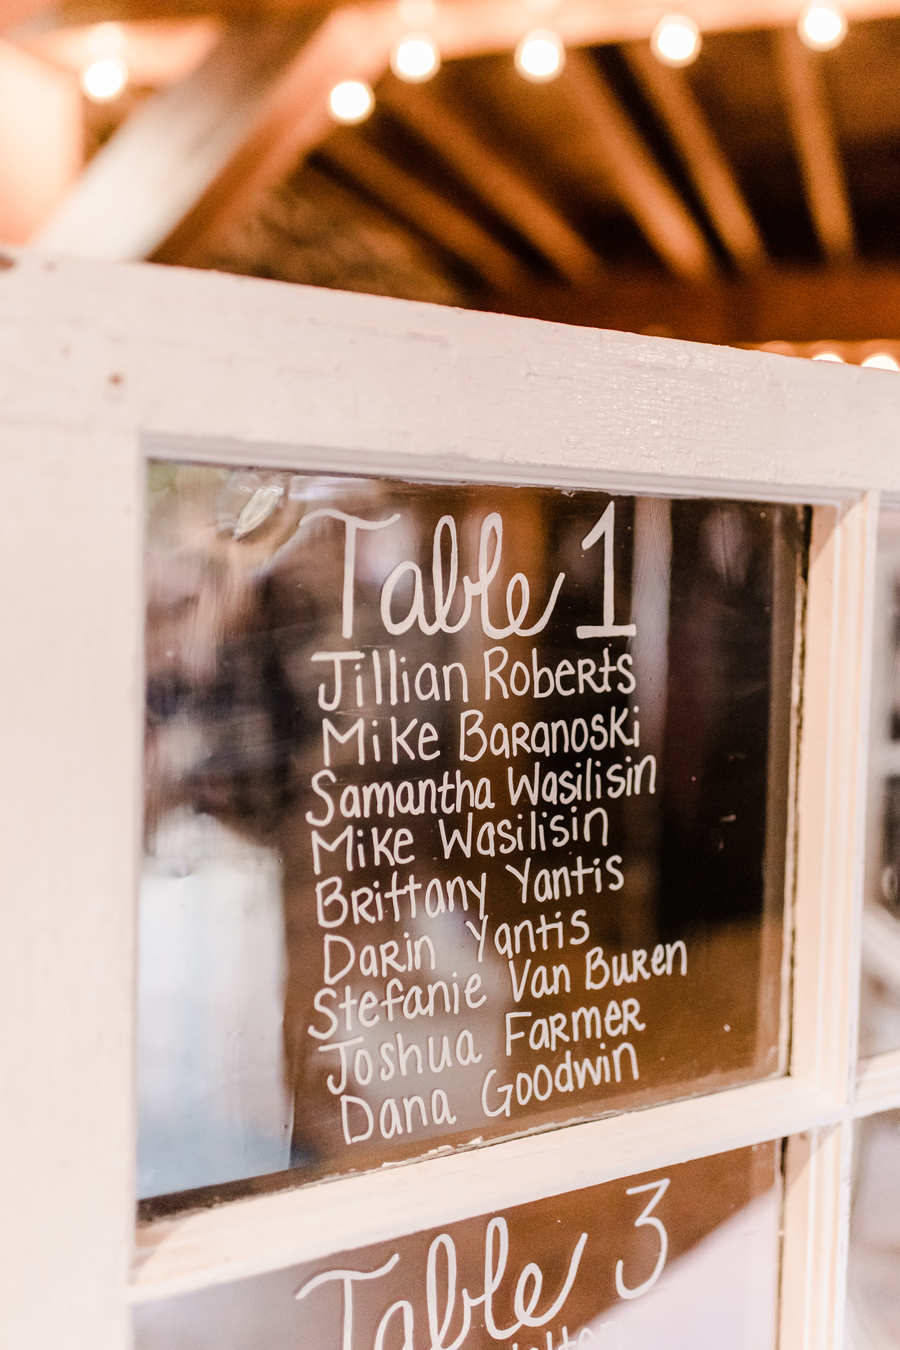 Table 1
Jillian Roberts
Mike Baranoski
Samantha Wasilisin
Mike Wasilisin
Brittany Yantis
Darin Yantis
Stefanie Van Buren
Joshua Farmer
Dana Goodwin
Table 3